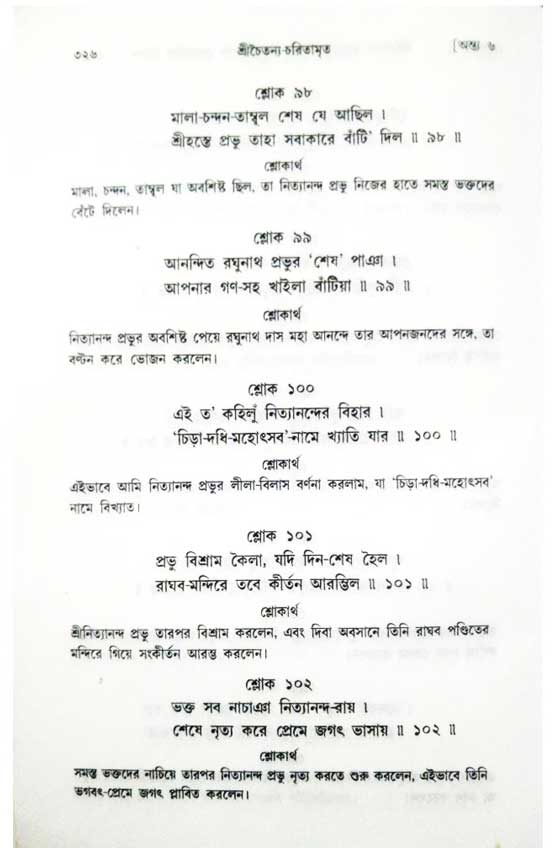 ৩২৬ শ্রীচৈতন্য-চরিতামৃত [অন্ত্য ৬
শ্লোক ৯৮
মালা-চন্দন-তাম্বূল শেষ যে আছিল ।
শ্রীহস্তে প্রভু তাহা সবাকারে বাঁটি' দিল ॥ ৯৮ ॥
শ্লোকার্থ
মালা, চন্দন, তাম্বূল যা অবশিষ্ট ছিল, তা নিত্যানন্দ প্রভু নিজের হাতে সমস্ত ভক্তদের
বেঁটে দিলেন।
শ্লোক ৯৯
আনন্দিত রঘুনাথ প্রভুর 'শেষ' পাঞা ।
আপনার গণ-সহ খাইলা বাঁটিয়া ॥ ৯৯ ॥
শ্লোকার্থ
নিত্যানন্দ প্রভুর অবশিষ্ট পেয়ে রঘুনাথ দাস মহা আনন্দে তার আপনজনদের সঙ্গে, তা
বণ্টন করে ভোজন করলেন।
শ্লোক ১০০
এই ত' কহিলুঁ নিত্যানন্দের বিহার ।
'চিড়া-দধি-মহোৎসব'-নামে খ্যাতি যার ॥ ১০০ ॥
শ্লোকার্থ
এইভাবে আমি নিত্যানন্দ প্রভুর লীলা-বিলাস বর্ণনা করলাম, যা 'চিড়া-দধি-মহোৎসব'
নামে বিখ্যাত।
শ্লোক ১০১
প্রভু বিশ্রাম কৈলা, যদি দিন-শেষ হৈল ।
রাঘব-মন্দিরে তবে কীর্তন আরম্ভিল ॥ ১০১ ॥
শ্লোকার্থ
শ্রীনিত্যানন্দ প্রভু তারপর বিশ্রাম করলেন, এবং দিবা অবসানে তিনি রাঘব পণ্ডিতের
মন্দিরে গিয়ে সংকীর্তন আরম্ভ করলেন।
শ্লোক ১০২
ভক্ত সব নাচাঞা নিত্যানন্দ-রায় ।
শেষে নৃত্য করে প্রেমে জগৎ ভাসায় ॥ ১০২ ॥
শ্লোকার্থ
সমস্ত ভক্তদের নাচিয়ে তারপর নিত্যানন্দ প্রভু নৃত্য করতে শুরু করলেন, এইভাবে তিনি
ভগবৎ-প্রেমে জগৎ প্লাবিত করলেন।